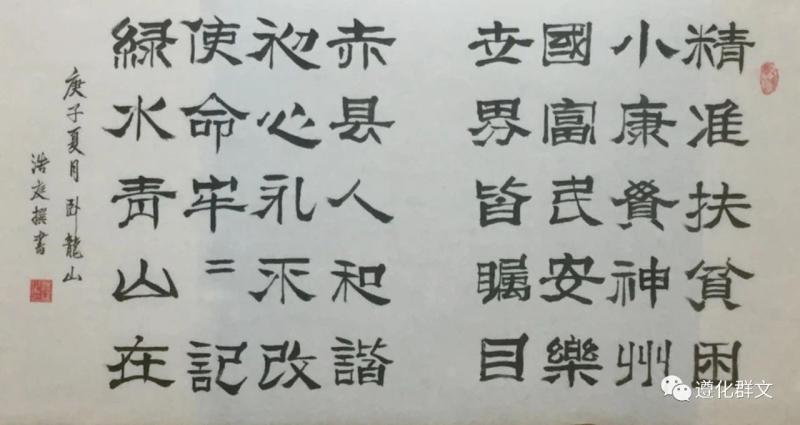 精准扶貧困
小康神州
國富民安樂
世界皆瞩目
赤县人和諧
初心永不改
使命牢二記
綠水青山在
庚子夏月卧龍山
浩庭撰書
遵化群文